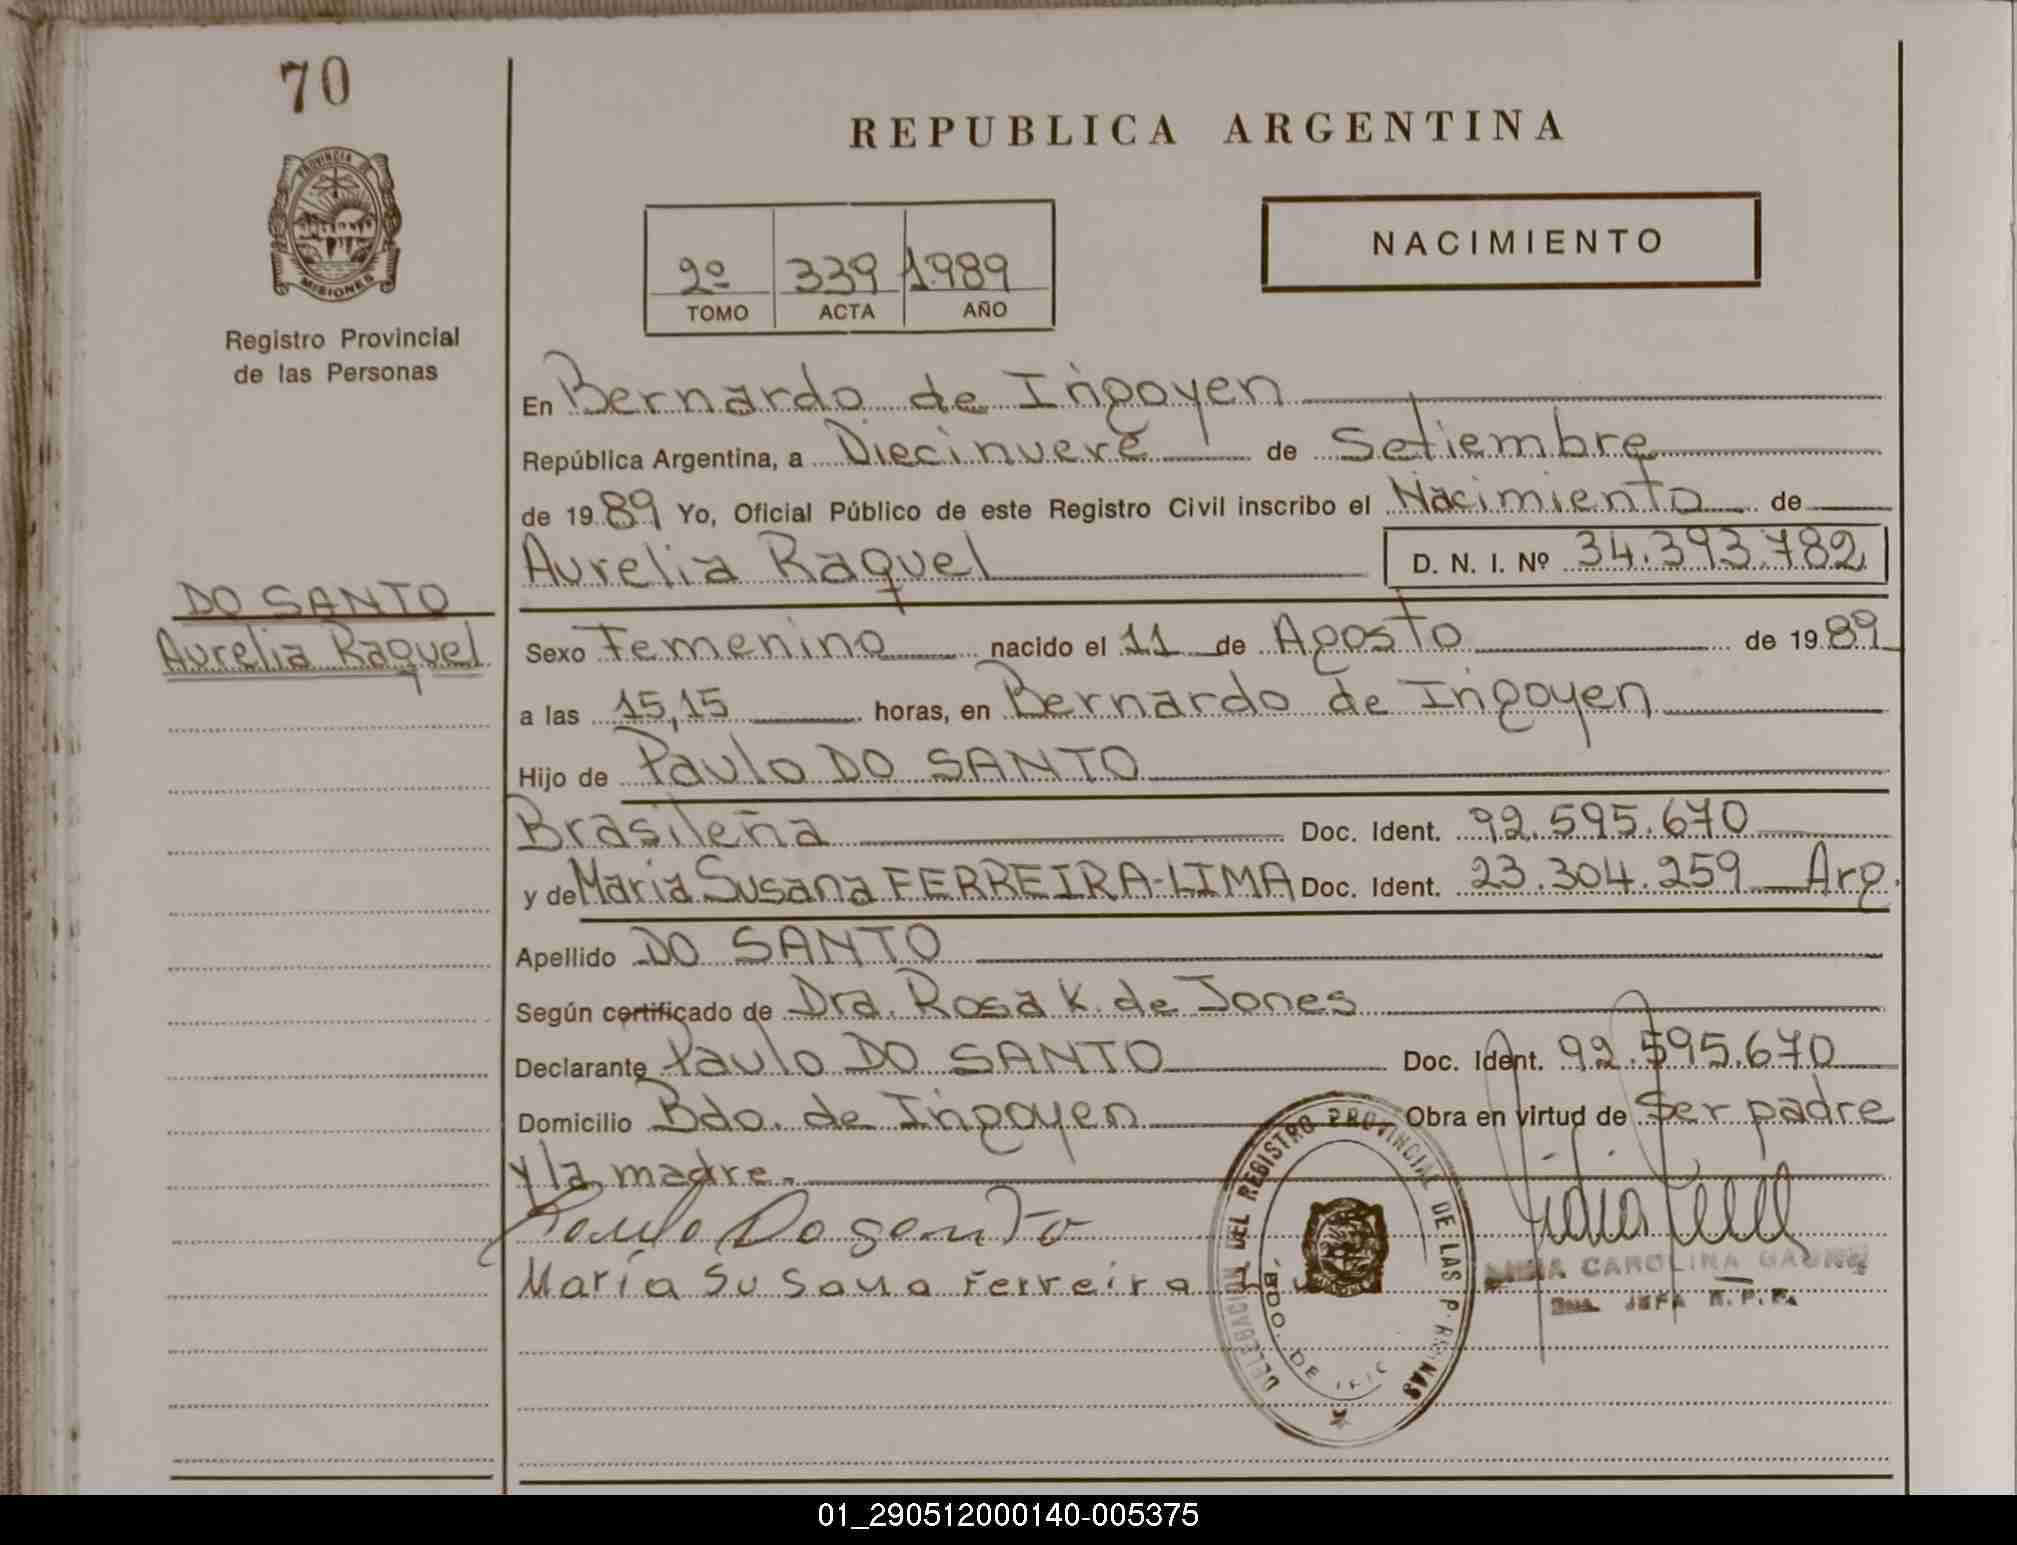 70
REPUBLICA ARGENTINA
PROVINCIA DE
MISIONES
Registro Provincial
de las Personas
2º 339 1989
TOMO ACTA AÑO
NACIMIENTO
En Bernardo de Irigoyen
República Argentina, a Diecinueve de Setiembre
de 1989 Yo, Oficial Público de este Registro Civil inscribo el Nacimiento de
Aurelia Raquel D. N. I. Nº 34.393.782
DO SANTO
Aurelia Raquel
Sexo Femenino nacido el 11 de Agosto de 1989
a las 15,15 horas, en Bernardo de Irigoyen
Hijo de Paulo DO SANTO
Brasileña Doc. Ident. 92.595.670
y de Maria Susana FERREIRA-LIMA Doc. Ident. 23.304.259 Arg.
Apellido DO SANTO
Según certificado de Dra. Rosa K. de Jones
Declarante Paulo DO SANTO Doc. Ident. 92.595.670
Domicilio Bdo. de Irigoyen Obra en virtud de Ser padre
y la madre.
Paulo Do santo
María Susana Ferreira
DELEGACION DEL REGISTRO PROVINCIAL DE LAS PERSONAS
BDO. DE
CAROLINA
JEFA R.P.P.
01_290512000140-005375